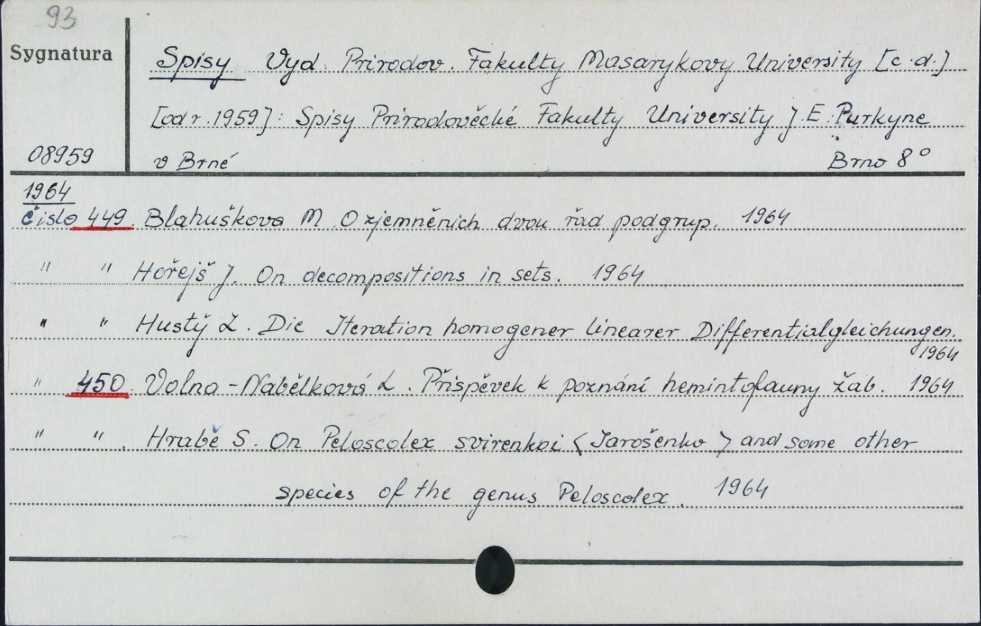 93
Sygnatura
Spisy Vyd. Prirodov. Fakulty Masarykovy University [c.d.]
[od r. 1959]: Spisy Prirodovĕcké Fakulty University J. E. Purkyne
08959 v Brné Brno 8°
1964
čislo 449. Blahuškova M. O zjemněnich dvou řad podgrup. 1964
" " Hořejš J. On decompositions in sets. 1964
" " Hustý Z. Die Iteration homogener linearer Differentialgleichungen.
1964
" 450. Volna-Nabělková L. Přispěvek k poznání hemintofauny žab. 1964
" " . Hrabě S. On Peloscolex svirenkoi <Jarošenko> and some other
species of the genus Peloscolex. 1964